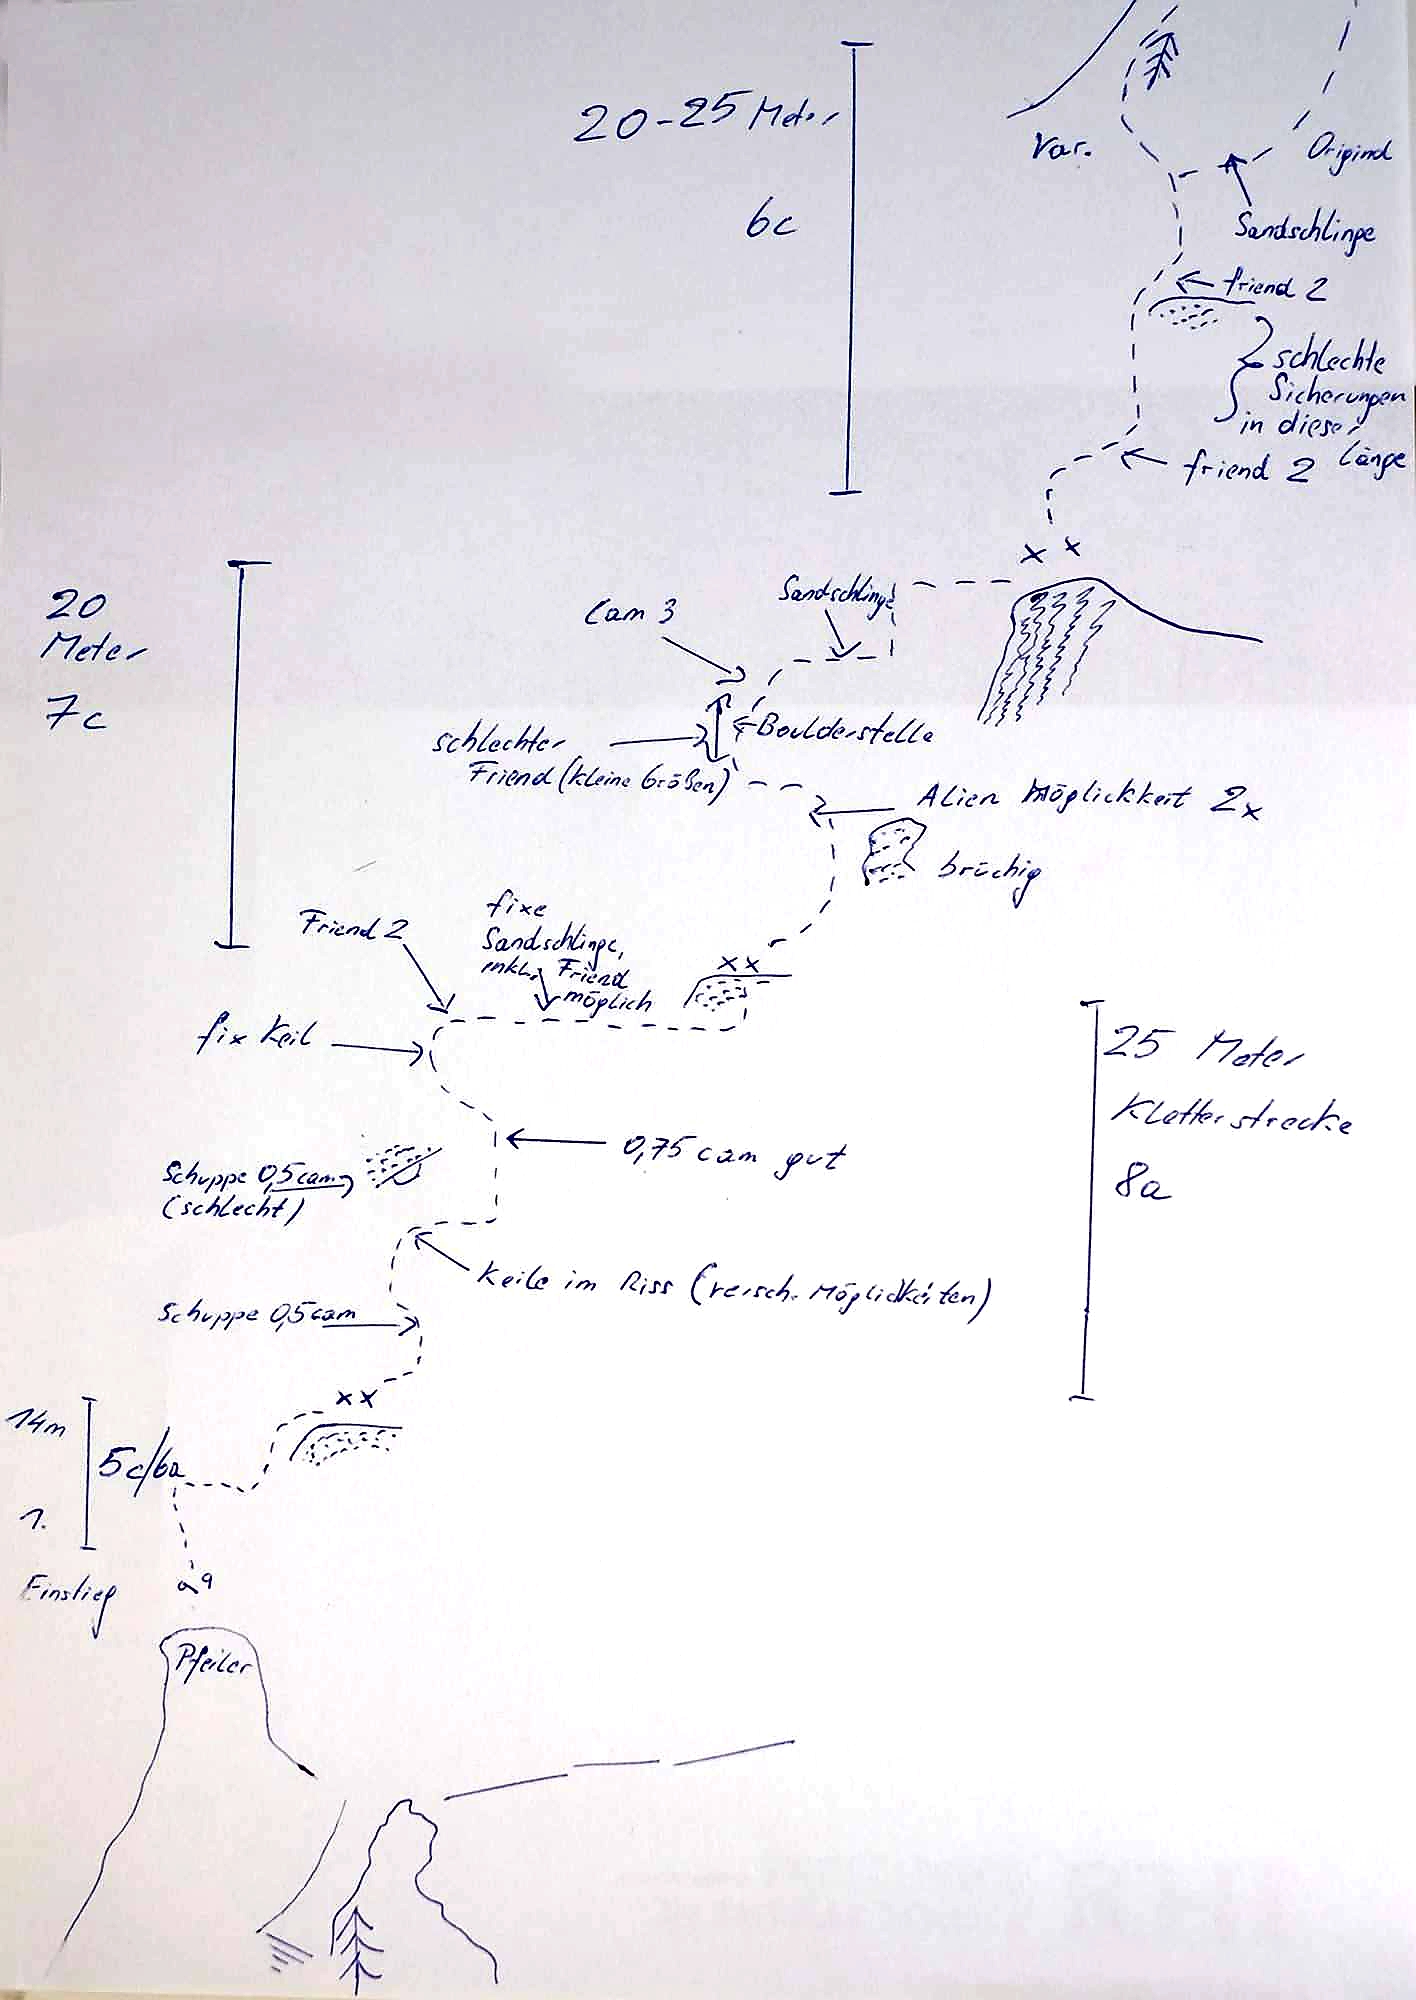 20-25 Meter
6c
Var.
Original
Sandschlinge
friend 2
schlechte
Sicherungen
in dieser
Länge
friend 2
x x
20
Meter
7c
Cam 3
Sandschlinge
schlechter
Friend (kleine Größen)
Boulderstelle
Alien Möglichkeit 2x
brüchig
Friend 2
fixe
Sandschlinge,
inkl. Friend
möglich
xx
fix Keil
25 Meter
Kletterstrecke
8a
0,75 cam gut
Schuppe 0,5cam
(schlecht)
Keile im Riss (versch. Möglichkeiten)
Schuppe 0,5cam
xx
14m
5c/6a
1.
Einstieg
Pfeiler